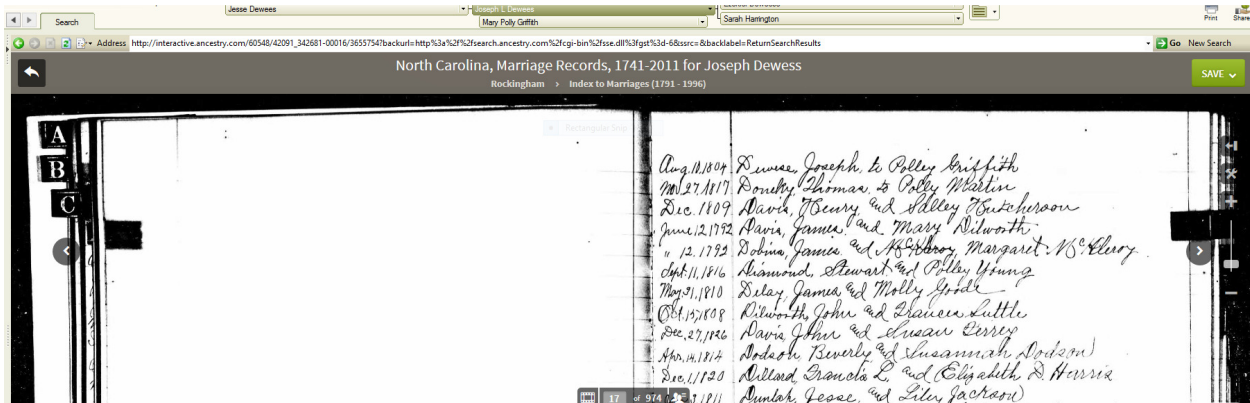 Jesse Dewees
Joseph L Dewees
Mary Polly Griffith
Sarah Harrington
Search
Print
Share
Address http://interactive.ancestry.com/60548/42091_342681-00016/3655754?backurl=http%3a%2f%2fsearch.ancestry.com%2fcgi-bin%2fsse.dll%3fgst%3d-6&ssrc=&backlabel=ReturnSearchResults
Go New Search
North Carolina, Marriage Records, 1741-2011 for Joseph Dewess
Rockingham > Index to Marriages (1791 - 1996)
SAVE
A
B
C
Rectangular Snip
Aug.10.1804 Duwise, Joseph, to Polley Griffith
Nov 27.1817 Thomas, to Polly Martin
Dec. 1809 Davis, Henry, and Salley Hutcherson
June 12.1792 Davis, James, and Mary Dilworth
" 12.1792 Dobins, James, and McKleroy, Margaret McKleroy
Sept. 11, 1816 Diamond, Stewart and Polley Young
May. 31, 1810 Delay, James and Molly Goode
Oct. 15, 1808 Dilworth, John and Frances Suttle
Dec. 27, 1826 Davis, John and Susan Terrey
Apr. 14. 1814 Dodson, Beverly and Susannah Dodson
Dec. 1, 1820 Dillard, Francis L. and Elizabeth D. Harris
1811 Dunlap, Jesse, and Liley Jackson
17 of 974